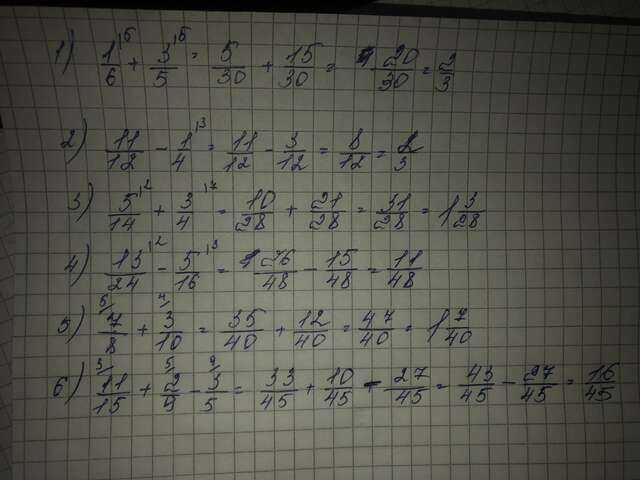 1) 1\5/6 + 3\5/5 = 5/30 + 15/30 = 20/30 = 2/3
2) 11/12 - 1\3/4 = 11/12 - 3/12 = 8/12 = 2/3
3) 5\2/14 + 3\7/4 = 10/28 + 21/28 = 31/28 = 1 3/28
4) 13\2/24 - 5\3/16 = 26/48 - 15/48 = 11/48
5) 5\7/8 + 4\3/10 = 35/40 + 12/40 = 47/40 = 1 7/40
6) 3\11/15 + 5\2/9 - 9\3/5 = 33/45 + 10/45 - 27/45 = 43/45 - 27/45 = 16/45